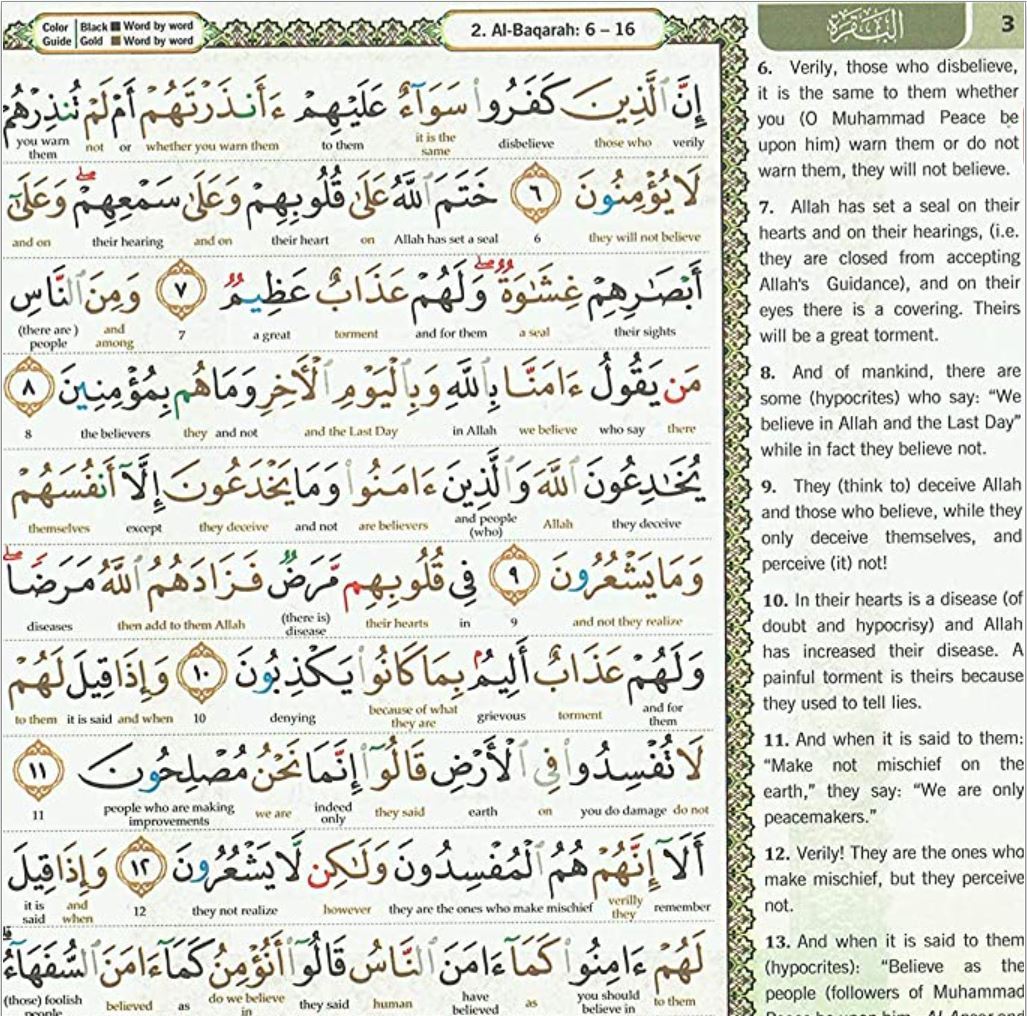 Color Guide | Black Word by word
Gold Word by word
2. Al-Baqarah: 6 – 16
البقرة
3
إِنَّ ٱلَّذِينَ كَفَرُوا۟ سَوَآءٌ عَلَيْهِمْ ءَأَنذَرْتَهُمْ أَمْ لَمْ تُنذِرْهُمْ
verily those who disbelieve it is the same to them whether you warn them or not you warn them
لَا يُؤْمِنُونَ ٦ خَتَمَ ٱللَّهُ عَلَىٰ قُلُوبِهِمْ وَعَلَىٰ سَمْعِهِمْ ۖ وَعَلَىٰٓ
they will not believe 6 Allah has set a seal on their heart and on their hearing and on
أَبْصَـٰرِهِمْ غِشَـٰوَةٌ ۖ وَلَهُمْ عَذَابٌ عَظِيمٌ ٧ وَمِنَ ٱلنَّاسِ
their sights a seal and for them torment a great 7 and among (there are ) people
مَن يَقُولُ ءَامَنَّا بِٱللَّهِ وَبِٱلْيَوْمِ ٱلْـَٔاخِرِ وَمَا هُم بِمُؤْمِنِينَ ٨
there who say we believe in Allah and the Last Day and not they the believers 8
يُخَـٰدِعُونَ ٱللَّهَ وَٱلَّذِينَ ءَامَنُوا۟ وَمَا يَخْدَعُونَ إِلَّآ أَنفُسَهُمْ
they deceive Allah and people (who) are believers and not they deceive except themselves
وَمَا يَشْعُرُونَ ٩ فِى قُلُوبِهِم مَّرَضٌ فَزَادَهُمُ ٱللَّهُ مَرَضًا ۖ
and not they realize 9 in their hearts (there is) disease then add to them Allah diseases
وَلَهُمْ عَذَابٌ أَلِيمٌۢ بِمَا كَانُوا۟ يَكْذِبُونَ ١٠ وَإِذَا قِيلَ لَهُمْ
and for them torment grievous because of what they are denying 10 and when it is said to them
لَا تُفْسِدُوا۟ فِى ٱلْأَرْضِ قَالُوٓا۟ إِنَّمَا نَحْنُ مُصْلِحُونَ ١١
do not you do damage on earth they said indeed only we are people who are making improvements 11
أَلَآ إِنَّهُمْ هُمُ ٱلْمُفْسِدُونَ وَلَـٰكِن لَّا يَشْعُرُونَ ١٢ وَإِذَا قِيلَ
remember verilly they they are the ones who make mischief however they not realize 12 and when it is said
لَهُمْ ءَامِنُوا۟ كَمَآ ءَامَنَ ٱلنَّاسُ قَالُوٓا۟ أَنُؤْمِنُ كَمَآ ءَامَنَ ٱلسُّفَهَآءُ
to them you should believe in as have believed human they said do we believe in as believed (those) foolish people
6. Verily, those who disbelieve,
it is the same to them whether
you (O Muhammad Peace be
upon him) warn them or do not
warn them, they will not believe.
7. Allah has set a seal on their
hearts and on their hearings, (i.e.
they are closed from accepting
Allah's Guidance), and on their
eyes there is a covering. Theirs
will be a great torment.
8. And of mankind, there are
some (hypocrites) who say: “We
believe in Allah and the Last Day”
while in fact they believe not.
9. They (think to) deceive Allah
and those who believe, while they
only deceive themselves, and
perceive (it) not!
10. In their hearts is a disease (of
doubt and hypocrisy) and Allah
has increased their disease. A
painful torment is theirs because
they used to tell lies.
11. And when it is said to them:
“Make not mischief on the
earth,” they say: “We are only
peacemakers.”
12. Verily! They are the ones who
make mischief, but they perceive
not.
13. And when it is said to them
(hypocrites): “Believe as the
people (followers of Muhammad
Peace be upon him, Al-Ansar and